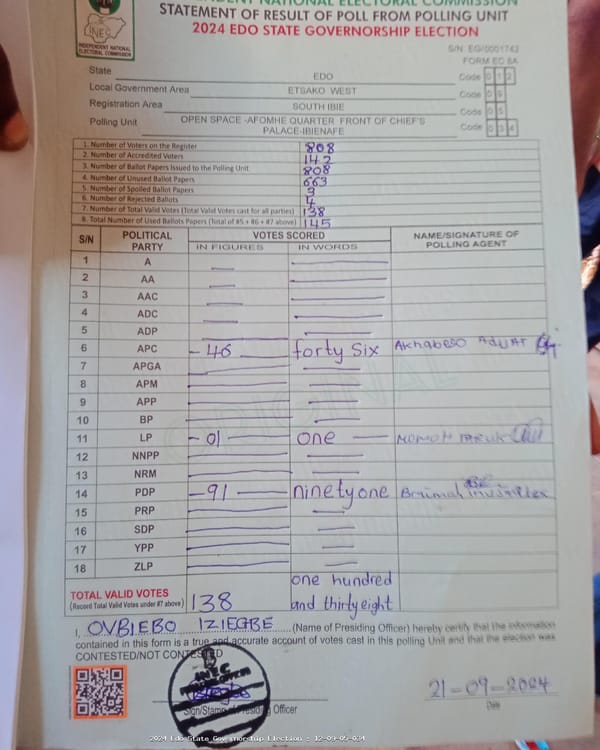 INDEPENDENT NATIONAL ELECTORAL COMMISSION
STATEMENT OF RESULT OF POLL FROM POLLING UNIT
2024 EDO STATE GOVERNORSHIP ELECTION
INEC
INDEPENDENT NATIONAL
ELECTORAL COMMISSION
S/N: EG/0001743
FORM EC 8A
State EDO Code 0 1 2
Local Government Area ETSAKO WEST Code 0 9
Registration Area SOUTH IBIE Code 0 5
Polling Unit OPEN SPACE -AFOMHE QUARTER FRONT OF CHIEF'S PALACE-IBIENAFE Code 0 3 4
1. Number of Voters on the Register 808
2. Number of Accredited Voters 142
3. Number of Ballot Papers Issued to the Polling Unit 808
4. Number of Unused Ballot Papers 663
5. Number of Spoiled Ballot Papers 3
6. Number of Rejected Ballots 4
7. Number of Total Valid Votes (Total Valid Votes cast for all parties) 138
8. Total Number of Used Ballots Papers (Total of #5 + #6 + #7 above) 145
S/N POLITICAL PARTY VOTES SCORED NAME/SIGNATURE OF POLLING AGENT
IN FIGURES IN WORDS
1 A
2 AA
3 AAC
4 ADC
5 ADP
6 APC - 46 forty six Akhabeso Aduat
7 APGA
8 APM
9 APP
10 BP
11 LP - 01 one MOMOH
12 NNPP
13 NRM
14 PDP - 91 ninety one Braimah
15 PRP
16 SDP
17 YPP
18 ZLP
TOTAL VALID VOTES
(Record Total Valid Votes under #7 above) 138 one hundred and thirty eight
I, OVBIEBO IZIEGBE (Name of Presiding Officer) hereby certify that the information
contained in this form is a true and accurate account of votes cast in this polling Unit and that the election was
CONTESTED/NOT CONTESTED
INEC
Sign/Stamp of Presiding Officer
21-09-2024
Date
2024 Edo State Governorship Election : 12-09-05-034